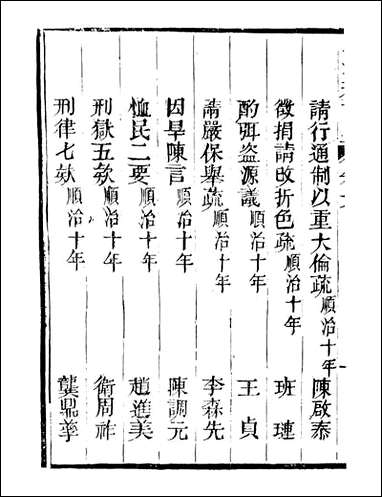 請行通制以重大倫疏順治十年 陳啟泰
徵捐請改折色疏順治十年 班璉
酌弭盜源議順治十年 王貞
請嚴保舉疏順治十年 李森先
因旱陳言順治十年 陳調元
恤民二要順治十年 趙進美
刑獄五欸順治十年 衛周祚
刑律七欸順治十年 龔鼎孳